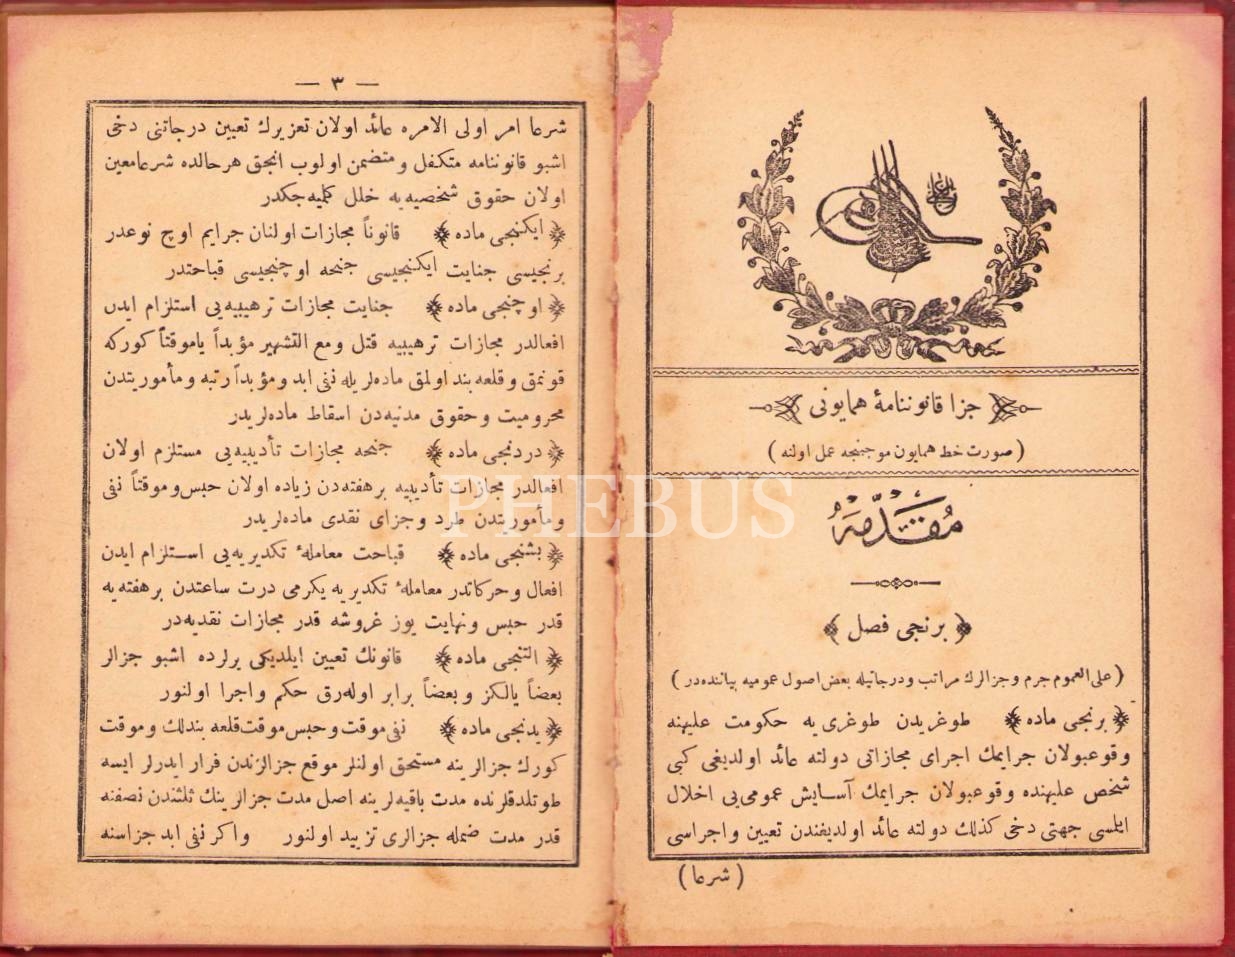 جزا قانوننامۀ همایونی
(صورت خط همایون موجبنجه عمل اولنه)
مُقَدِّمَهْ
﴿ برنجی فصل ﴾
(علی العموم جرم وجزالرك مراتب ودرجاتیله بعض اصول عمومیه بیاننده در)
﴿ برنجی ماده ﴾ طوغریدن طوغری یه حکومت علیهنه
وقوعبولان جرایمك اجرای مجازاتی دولته عائد اولدیغی کبی
شخص علیهنده وقوعبولان جرایمك آسایش عمومی یی اخلال
ایلمسی جهتی دخی کذلك دولته عائد اولدیغندن تعیین واجراسی
(شرعا)
— ٣ —
شرعا امر اولی الامره عائد اولان تعزیرك تعیین درجاتنی دخی
اشبو قانوننامه متکفل ومتضمن اولوب انجق هرحالده شرعا معین
اولان حقوق شخصیه یه خلل کلمیه جکدر
﴿ ایکنجی ماده ﴾ قانوناً مجازات اولنان جرایم اوچ نوعدر
برنجیسی جنایت ایکنجیسی جنحه اوچنجیسی قباحتدر
﴿ اوچنجی ماده ﴾ جنایت مجازات ترهیبیه یی استلزام ایدن
افعالدر مجازات ترهیبیه قتل ومع التشهیر مؤبداً یا موقتاً کورکه
قونمق وقلعه بند اولمق ماده لریله نفی ابد ومؤبداً رتبه ومأموریتدن
محرومیت وحقوق مدنیه دن اسقاط ماده لریدر
﴿ دردنجی ماده ﴾ جنحه مجازات تأدیبیه یی مستلزم اولان
افعالدر مجازات تأدیبیه برهفته دن زیاده اولان حبس وموقتاً نفی
ومأموریتدن طرد وجزای نقدی ماده لریدر
﴿ بشنجی ماده ﴾ قباحت معاملۀ تکدیریه یی استلزام ایدن
افعال وحرکاتدر معاملۀ تکدیریه یکرمی درت ساعتدن برهفته یه
قدر حبس ونهایت یوز غروشه قدر مجازات نقدیه در
﴿ التنجی ماده ﴾ قانونك تعیین ایلدیکی یرلرده اشبو جزالر
بعضاً یالکز وبعضاً برابر اوله رق حکم واجرا اولنور
﴿ یدنجی ماده ﴾ نفی موقت وحبس موقت قلعه بندلك وموقت
کورك جزالرینه مستحق اولنلر موقع جزالرندن فرار ایدرلر ایسه
طوتلدقلرنده مدت باقیه لرینه اصل مدت جزالرینك ثلثندن نصفنه
قدر مدت ضمله جزالری تزیید اولنور واکر نفی ابد جزاسنه
PHEBUS